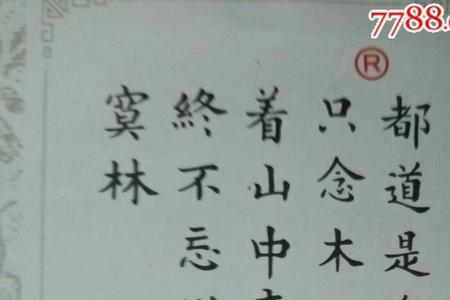 7788.
®
都道是
只念木
着山中
終不忘
寞林